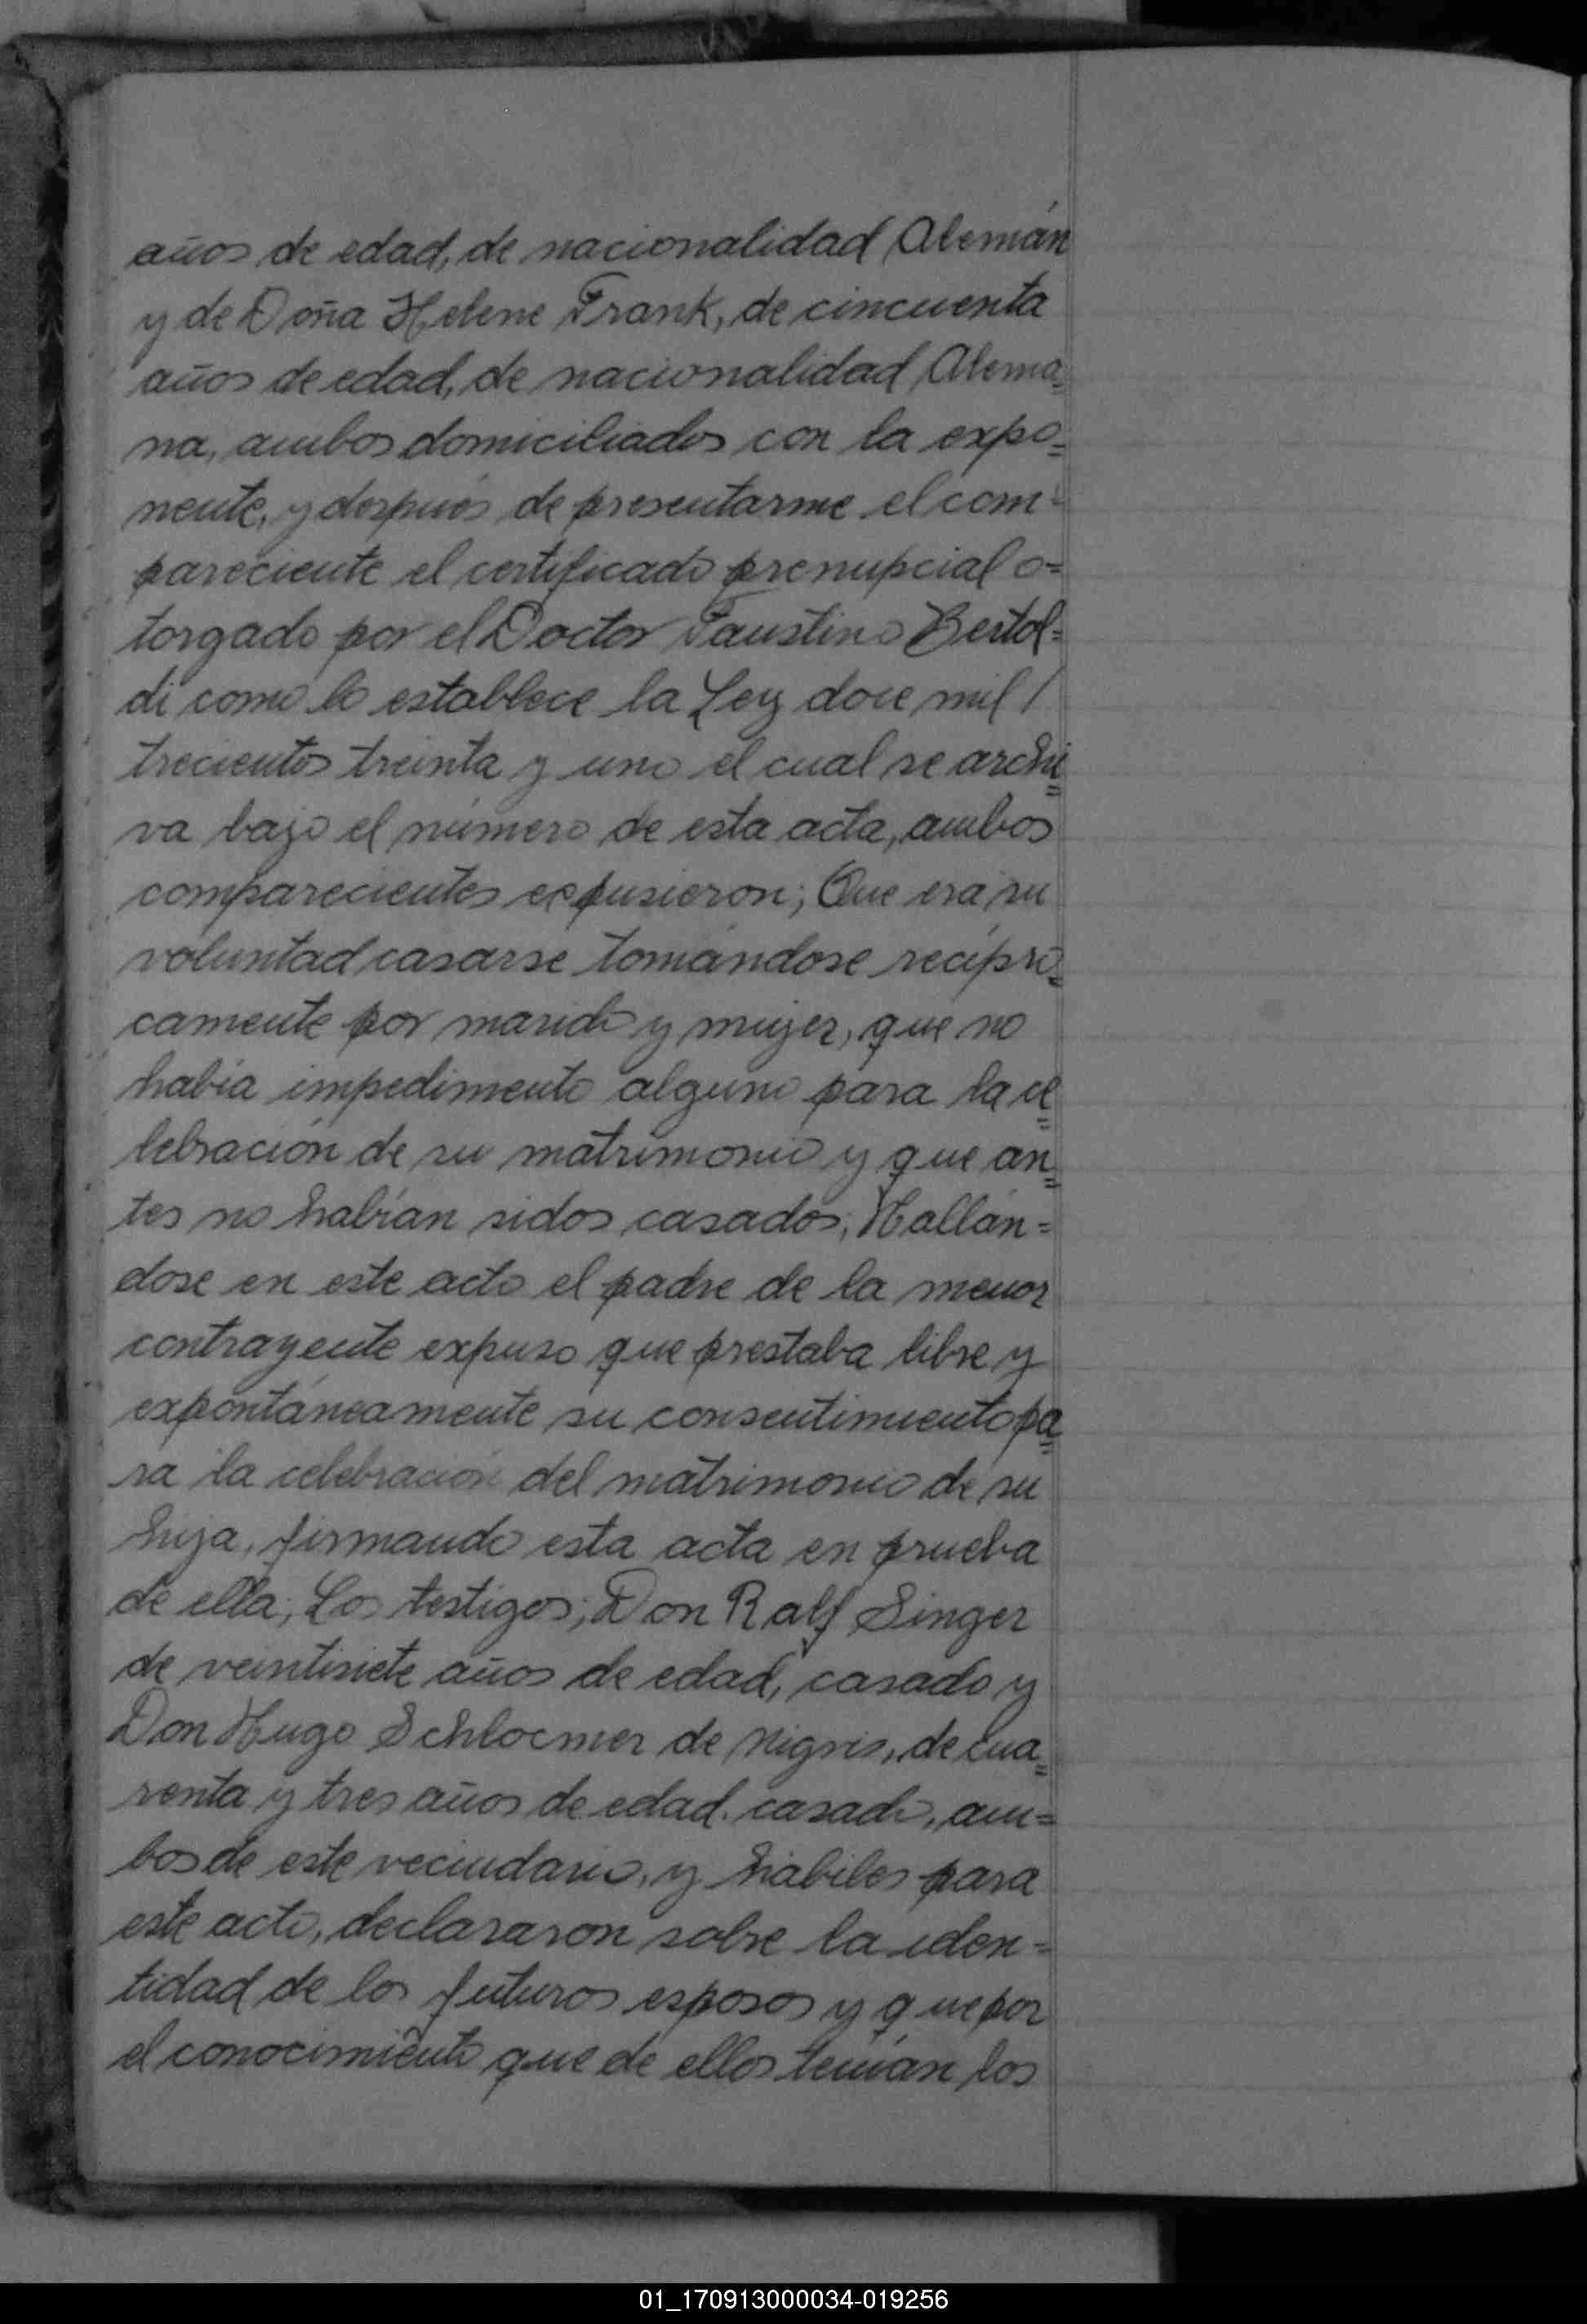 años de edad, de nacionalidad Alemán
y de Doña Helene Frank, de cincuenta
años de edad, de nacionalidad Alema=
na, ambos domiciliados con la expo=
nente, y después de presentarme el com=
pareciente el certificado prenupcial o=
torgado por el Doctor Faustino Bertol=
di como lo establece la Ley doce mil /
trecientos treinta y uno el cual se archi=
va bajo el número de esta acta, ambos
comparecientes expusieron; Que era su
voluntad casarse tomándose recípro=
camente por marido y mujer, que no
había impedimento alguno para la ce=
lebración de su matrimonio y que an=
tes no habían sidos casados; Hallán=
dose en este acto el padre de la menor
contrayente expuso que prestaba libre y
expontáneamente su consentimiento pa=
ra la celebración del matrimonio de su
hija, firmando esta acta en prueba
de ella; Los testigos; Don Ralf Singer
de veintisiete años de edad, casado y
Don Hugo Schloemer de Nigris, de cua=
renta y tres años de edad. casado, am=
bos de este vecindario, y hábiles para
este acto, declararon sobre la iden=
tidad de los futuros esposos y que por
el conocimiento que de ellos tenían los
01_170913000034-019256